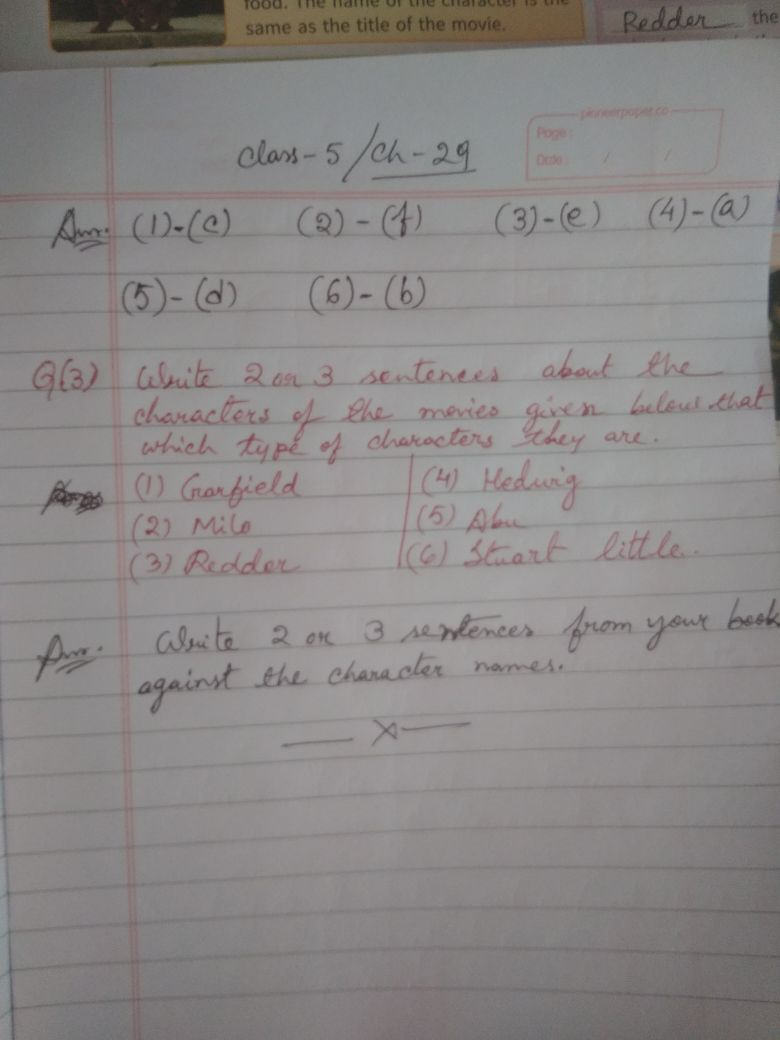 food. The name of the character is the
same as the title of the movie.
Redder the
pioneerpaper.co
Page :
Date : / /
Class - 5 / Ch - 29
Ans. (1)-(c) (2)-(f) (3)-(e) (4)-(a)
(5)-(d) (6)-(b)
Q(3) Write 2 or 3 sentences about the
characters of the movies given below that
which type of characters they are.
(1) Garfield
(2) Milo
(3) Redder
(4) Hedwig
(5) Abu
(6) Stuart little.
Ans. Write 2 or 3 sentences from your book
against the character names.
— x —